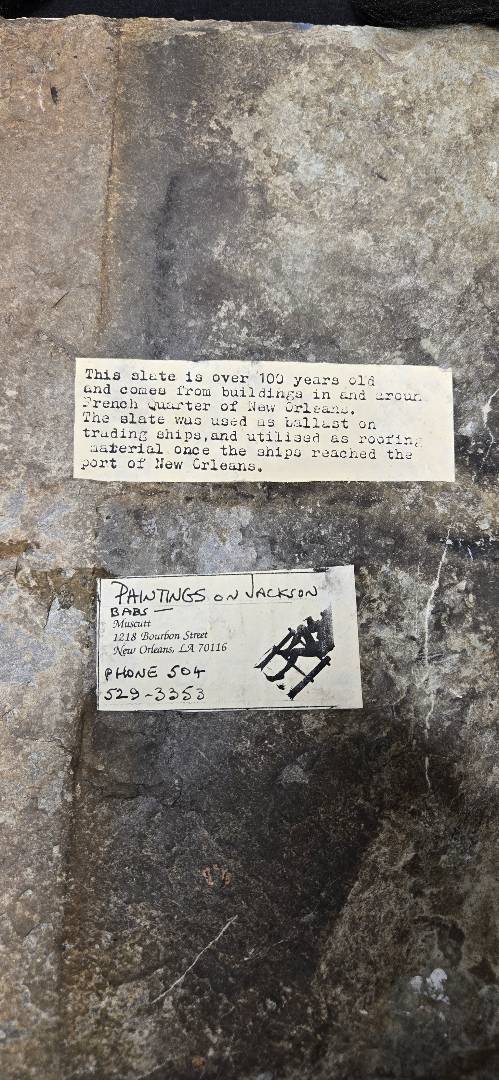 This slate is over 100 years old
and comes from buildings in and aroun
French Quarter of New Orleans.
The slate was used as ballast on
trading ships,and utilised as roofing
material once the ships reached the
port of New Orleans.
PAINTINGS ON JACKSON
BABS —
Muscutt
1218 Bourbon Street
New Orleans, LA 70116
PHONE 504
529-3353